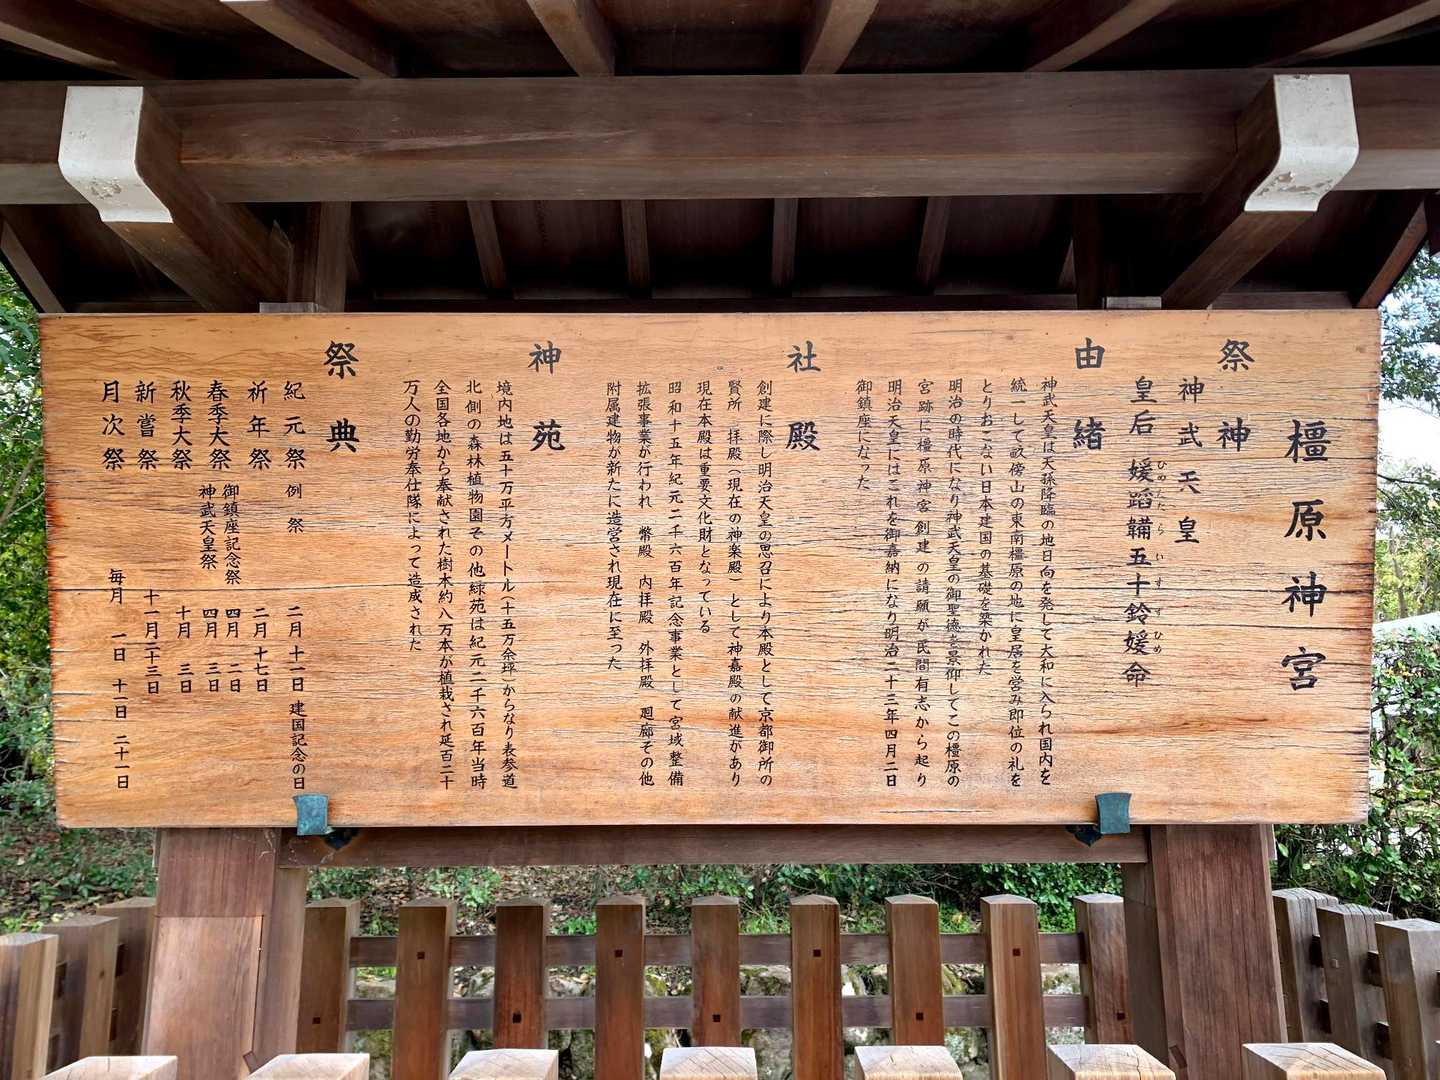 橿原神宮
祭神
神武天皇
皇后 媛蹈鞴五十鈴媛命
ひめたたらいすずひめ
由緒
神武天皇は天孫降臨の地日向を発して大和に入られ国内を
統一して畝傍山の東南橿原の地に皇居を営み即位の礼を
とりおこない日本建国の基礎を築かれた
明治の時代になり神武天皇の御聖徳を景仰してこの橿原の
宮跡に橿原神宮創建の請願が民間有志から起り
明治天皇にはこれを御嘉納になり明治二十三年四月二日
御鎮座になった
社殿
創建に際し明治天皇の思召により本殿として京都御所の
賢所 拝殿（現在の神楽殿）として神嘉殿の献進があり
現在本殿は重要文化財となっている
昭和十五年紀元二千六百年記念事業として宮域整備
拡張事業が行われ 幣殿 内拝殿 外拝殿 廻廊その他
附属建物が新たに造営され現在に至った
神苑
境内地は五十万平方メートル（十五万余坪）からなり表参道
北側の森林植物園その他綜苑は紀元二千六百年当時
全国各地から奉献された樹木約八万本が植栽され延百二十
万人の勤労奉仕隊によって造成された
祭典
紀元祭 例祭 二月十一日 建国記念の日
祈年祭 二月十七日
春季大祭 御鎮座記念祭 四月 二日
神武天皇祭 四月 三日
秋季大祭 十月 三日
新嘗祭 十一月二十三日
月次祭 毎月 一日 十一日 二十一日